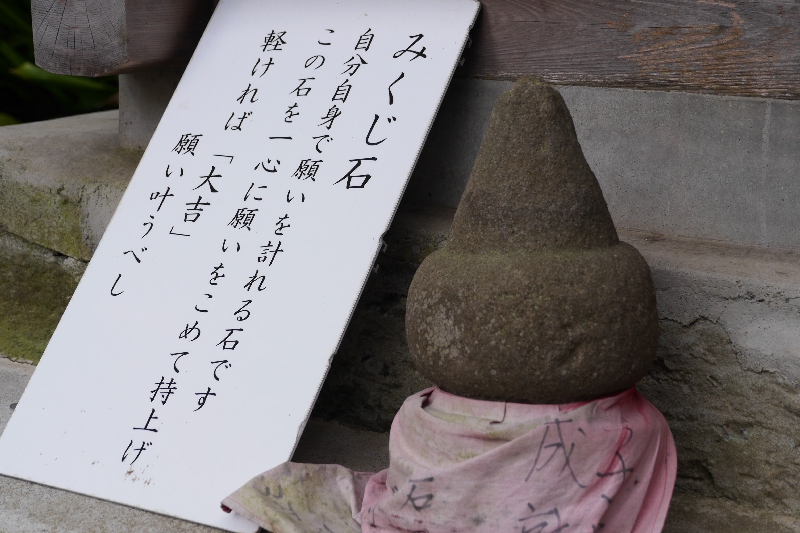 みくじ石
自分自身で願いを計れる石です
この石を一心に願いをこめて持上げ
軽ければ「大吉」
願い叶うべし
成
石